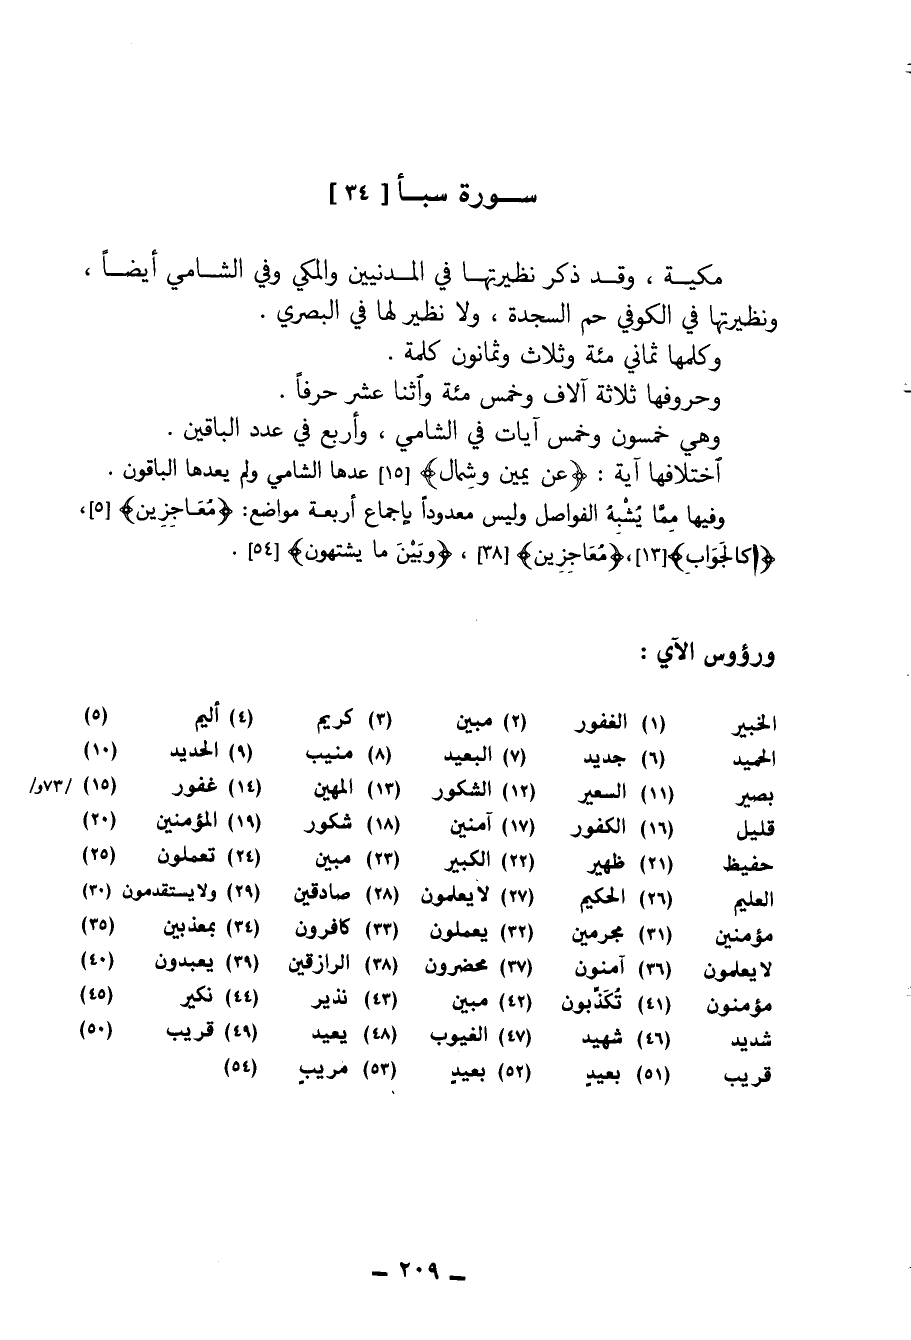 سـورة سبـأ [ ٣٤ ]
مكيـة ، وقـد ذكر نظيرتهـا في المـدنيين والمكي وفي الشـامي أيضـاً ،
ونظيرتها في الكوفي حم السجدة ، ولا نظير لها في البصري .
وكلمها ثماني مئة وثلاث وثمانون كلمة .
وحروفها ثلاثة آلاف وخمس مئة وٱثنا عشر حرفاً .
وهي خمسون وخمس آيات في الشامي ، وأربع في عدد الباقين .
ٱختلافها آية : ﴿عن يمين وشمال﴾ [١٥] عدها الشامي ولم يعدها الباقون .
وفيها ممَّا يُشْبِهُ الفواصل وليس معدوداً بإجماع أربعـة مواضع: ﴿مُعَـاجِزين﴾ [٥]،
﴿كالجَوَابِ﴾[١٣]،﴿مُعَاجِزين﴾ [٣٨] ، ﴿وبَيْنَ ما يشتهون﴾ [٥٤] .
ورؤوس الآي :
الخبير (١) الغفور (٢) مبين (٣) كريم (٤) أليم (٥)
الحميد (٦) جديد (٧) البعيد (٨) منيب (٩) الحديد (١٠)
بصير (١١) السعير (١٢) الشكور (١٣) المهين (١٤) غفور (١٥) /٧٣و/
قليل (١٦) الكفور (١٧) آمنين (١٨) شكور (١٩) المؤمنين (٢٠)
حفيظ (٢١) ظهير (٢٢) الكبير (٢٣) مبين (٢٤) تعملون (٢٥)
العليم (٢٦) الحكيم (٢٧) لايعلمون (٢٨) صادقين (٢٩) ولايستقدمون (٣٠)
مؤمنين (٣١) مجرمين (٣٢) يعملون (٣٣) كافرون (٣٤) بمعذبين (٣٥)
لايعلمون (٣٦) آمنون (٣٧) محضرون (٣٨) الرازقين (٣٩) يعبدون (٤٠)
مؤمنون (٤١) تُكَذِّبون (٤٢) مبين (٤٣) نذير (٤٤) نكير (٤٥)
شديد (٤٦) شهيد (٤٧) الغيوب (٤٨) يعيد (٤٩) قريب (٥٠)
قريب (٥١) بعيدٍ (٥٢) بعيدٍ (٥٣) مريبٍ (٥٤)
ـ ٢٠٩ ـ